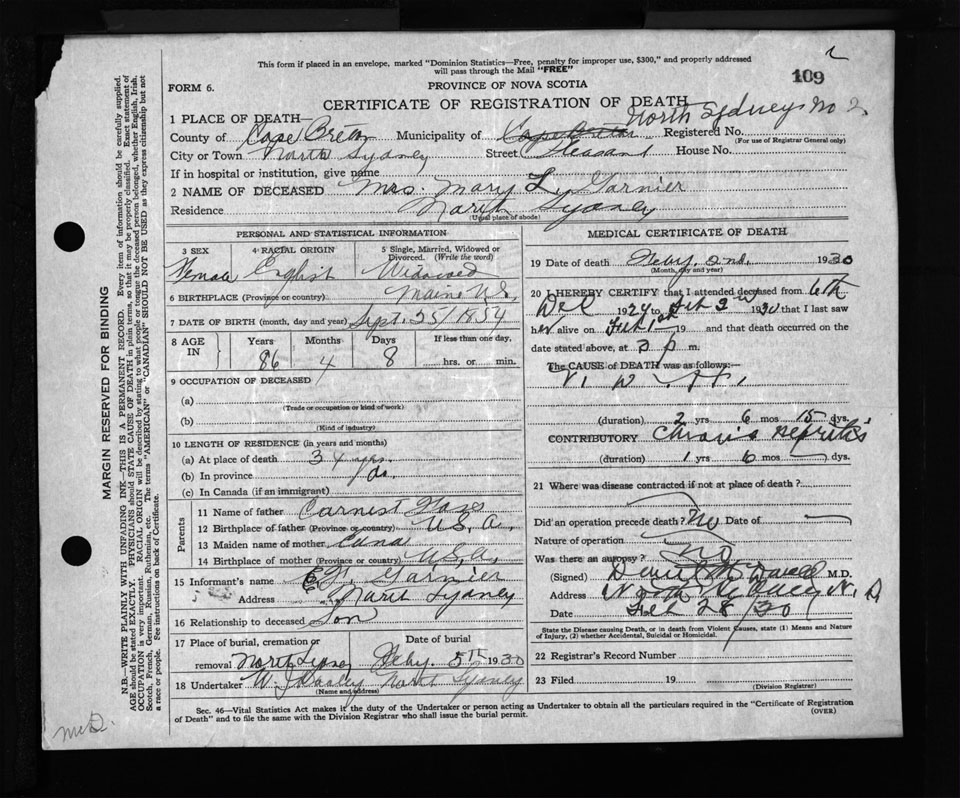 2
This form if placed in an envelope, marked "Dominion Statistics—Free, penalty for improper use, $300," and properly addressed
will pass through the Mail "FREE"
109
FORM 6.
PROVINCE OF NOVA SCOTIA
CERTIFICATE OF REGISTRATION OF DEATH
North Sydney No 2
1 PLACE OF DEATH—
County of Cape Breton Municipality of Cape Breton Registered No.
(For use of Registrar General only)
City or Town North Sydney Street Pleasant House No.
If in hospital or institution, give name
2 NAME OF DECEASED Mrs. Mary L. Garnier
Residence North Sydney
(Usual place of abode)
PERSONAL AND STATISTICAL INFORMATION
3 SEX 4 RACIAL ORIGIN 5 Single, Married, Widowed or Divorced. (Write the word)
Female English Widowed
6 BIRTHPLACE (Province or country) Maine U.S.
7 DATE OF BIRTH (month, day and year) Sept. 25/1854
8 AGE IN Years Months Days If less than one day,
86 4 8 hrs. or min.
9 OCCUPATION OF DECEASED
(a)
(Trade or occupation or kind of work)
(b)
(Kind of industry)
10 LENGTH OF RESIDENCE (in years and months)
(a) At place of death 34 yrs.
(b) In province do.
(c) In Canada (if an immigrant)
Parents
11 Name of father
12 Birthplace of father (Province or country) U.S.A.
13 Maiden name of mother
14 Birthplace of mother (Province or country) U.S.A.
15 Informant's name Garnier
Address North Sydney
16 Relationship to deceased Son
17 Place of burial, cremation or removal Date of burial
North Sydney Feby. 5th 1930
18 Undertaker W. J. Dooley North Sydney
(Name and address)
MEDICAL CERTIFICATE OF DEATH
19 Date of death Feby. 2nd. 1930
(Month, day and year)
20 I HEREBY CERTIFY that I attended deceased from 6th
Dec 1929 to Feb 2nd 1930 that I last saw
her alive on Feb 1st 19 and that death occurred on the
date stated above, at 3 p m.
The CAUSE OF DEATH was as follows:
(duration) 2 yrs 6 mos 15 dys.
CONTRIBUTORY Chronic Nephritis
(duration) 1 yrs 6 mos dys.
21 Where was disease contracted if not at place of death?
Did an operation precede death? No Date of
Nature of operation
Was there an autopsy? No
(Signed) M.D.
Address North Sydney N.S.
Date Feb 28/30
State the Disease causing Death, or in death from Violent Causes, state (1) Means and Nature
of Injury, (2) whether Accidental, Suicidal or Homicidal.
22 Registrar's Record Number
23 Filed 19
(Division Registrar)
Sec. 46—Vital Statistics Act makes it the duty of the Undertaker or person acting as Undertaker to obtain all the particulars required in the "Certificate of Registration
of Death" and to file the same with the Division Registrar who shall issue the burial permit.
(OVER)
MARGIN RESERVED FOR BINDING
N.B.—WRITE PLAINLY WITH UNFADING INK—THIS IS A PERMANENT RECORD. Every item of information should be carefully supplied.
AGE should be stated EXACTLY. PHYSICIANS should STATE CAUSE OF DEATH in plain terms, so that it may be properly classified. Exact statement of
OCCUPATION is very important. RACIAL ORIGIN will be described by stating to what people or tongue the deceased person belonged, whether English, Irish,
Scotch, French, German, Russian, Ruthenian, etc. The terms "AMERICAN" or "CANADIAN" SHOULD NOT BE USED as they express citizenship but not
a race or people. See instructions on back of Certificate.